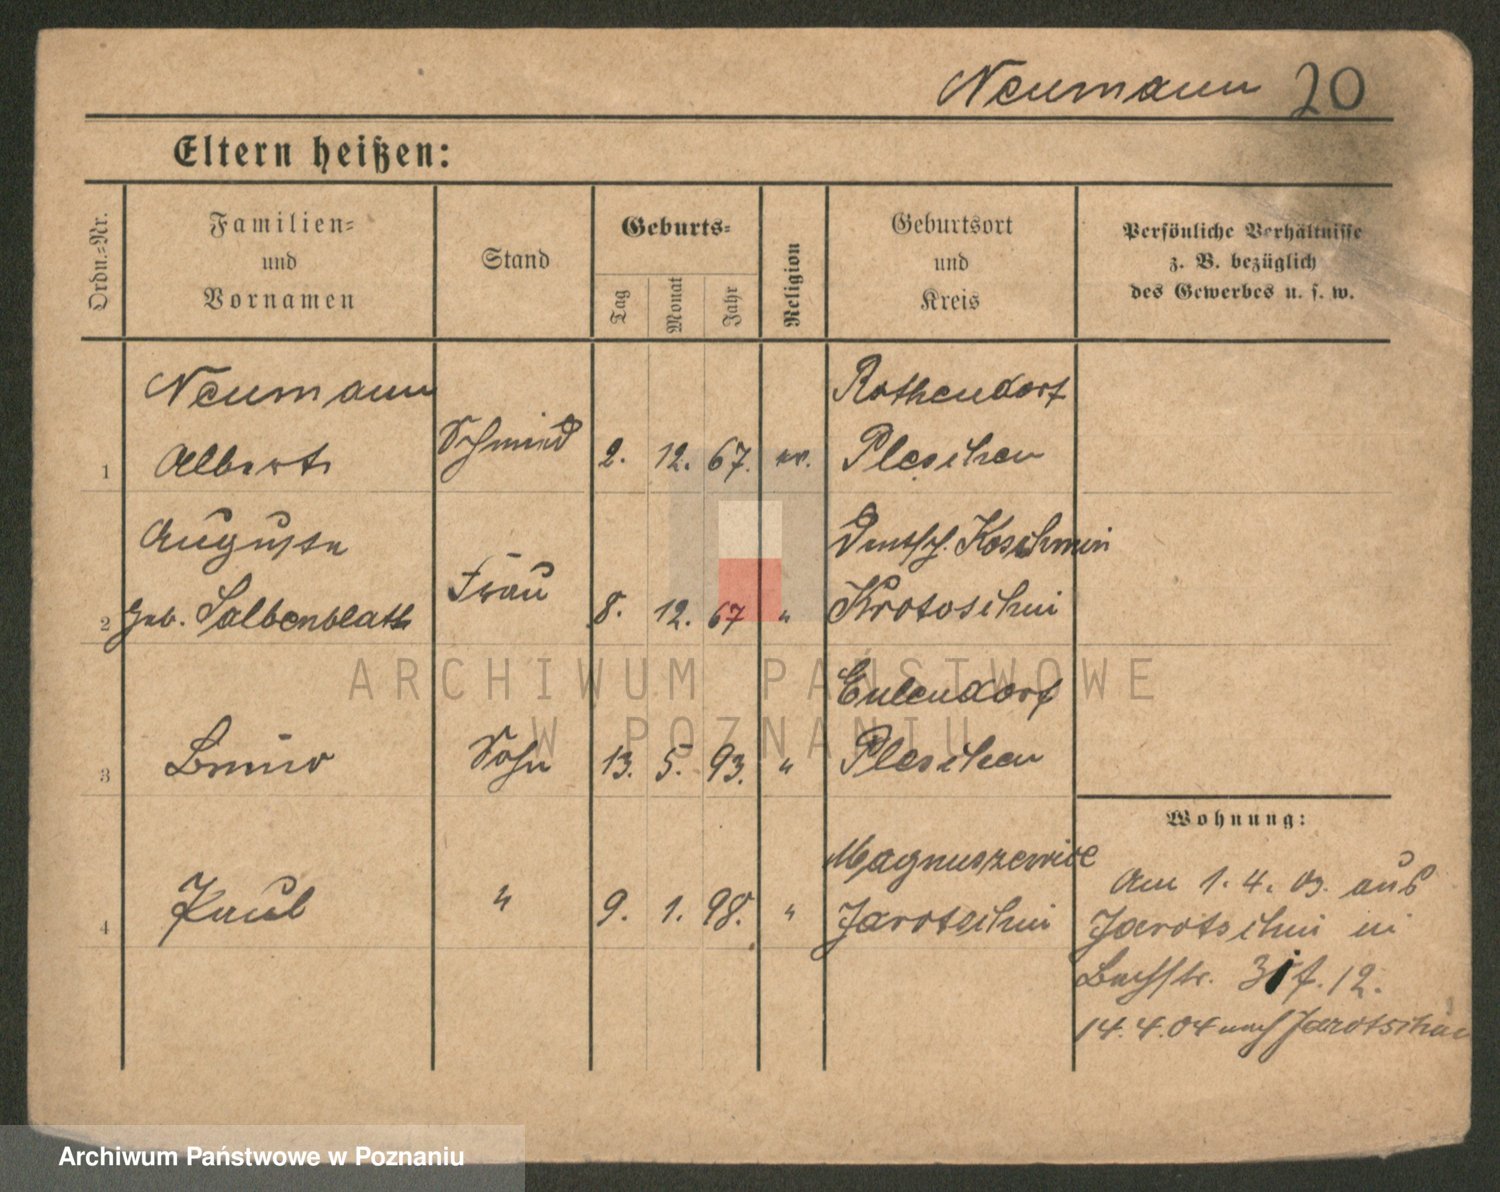 Neumann 20
Eltern heißen:
Ordn.-Nr.
Familien-
und
Vornamen
Stand
Geburts-
Tag
Monat
Jahr
Religion
Geburtsort
und
Kreis
Persönliche Verhältnisse
z. B. bezüglich
des Gewerbes u. s. w.
Neumann
Albert
1
Schmied
2. 12. 67. ev.
Rothendorf
Pleschen
Auguste
2
geb. Salbenblatt
Frau
8. 12. 67 "
Deutsch. Koschmin
Krotoschin
3
Bruno
Sohn
13. 5. 93. "
Eulendorf
Pleschen
4
Paul
"
9. 1. 98. "
Magnuszewice
Jarotschin
Wohnung:
Am 1. 4. 03. aus
Jarotschin in
Bachstr. 12.
14. 4. 04 nach Jarotschin
ARCHIWUM PAŃSTWOWE
W POZNANIU
Archiwum Państwowe w Poznaniu